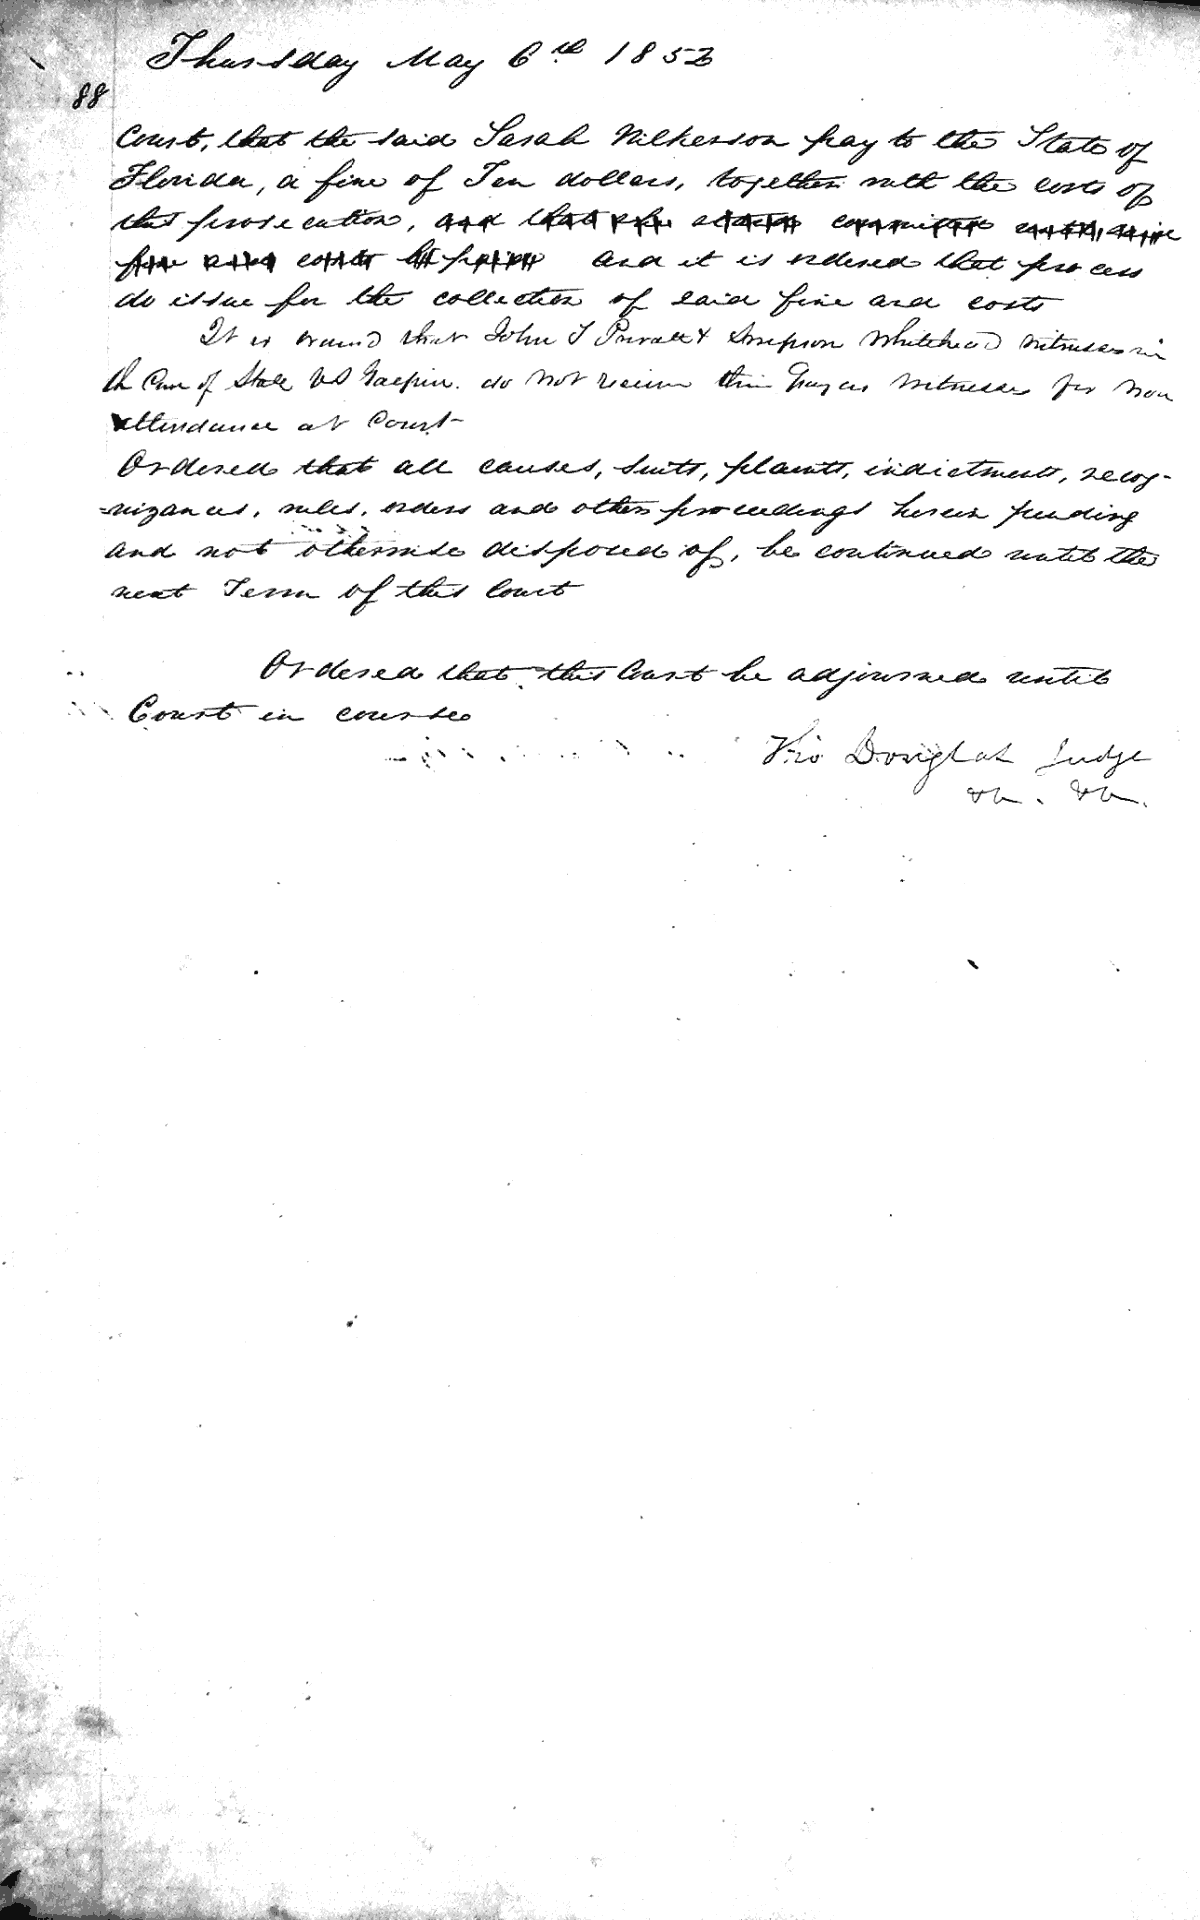 Thursday May 6th 1852
88
Court, that the said Sarah Wilkerson pay to the State of
Florida, a fine of Ten dollars, together with the costs of
this prosecution, and that she stand committed until said
fine and costs be paid and it is ordered that process
do issue for the collection of said fine and costs
It is ordered that John T Privatt & Simpson Whitehead witnesses in
the Case of State vs Galpin. do not receive their pay as witnesses for non
attendance at Court
Ordered that all causes, suits, plaints, indictments, recog-
-nizances, rules, orders and other proceedings herein pending
and not otherwise disposed of, be continued until the
next Term of this Court
Ordered that this Court be adjourned until
Court in course
Tho Douglas Judge
&c. &c.